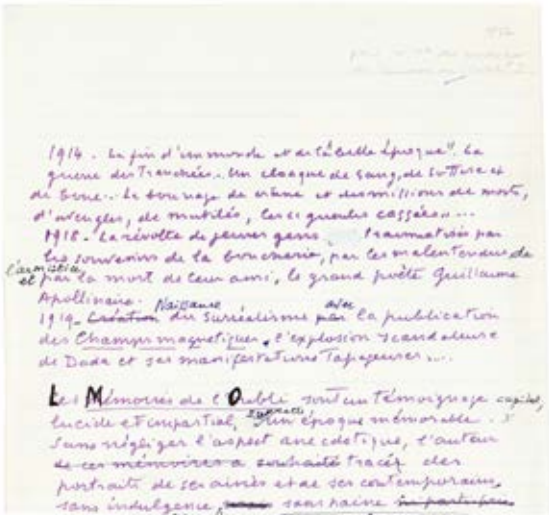 1914. La fin d'un monde et de la "Belle Époque". La
guerre des Tranchées. Un cloaque de sang, de sottise et
de boue. Le bourrage de crâne et des millions de morts,
d'aveugles, de mutilés, les "gueules cassées"...
1918. La révolte de jeunes gens traumatisés par
les souvenirs de la boucherie, par les malentendus de
l'armistice et par la mort de leur ami, le grand poète Guillaume
Apollinaire.
1919. Création Naissance du Surréalisme par avec la publication
des Champs magnétiques, l'explosion scandaleuse
de Dada et ses manifestations Tapageuses....
Les Mémoires de l'Oubli sont un témoignage capital,
lucide et impartial, d'une époque mémorable.
Sans négliger l'aspect anecdotique, l'auteur
de ces mémoires a souhaité tracer des
portraits de ses aînés et de ses contemporains,
sans indulgence, sans haine